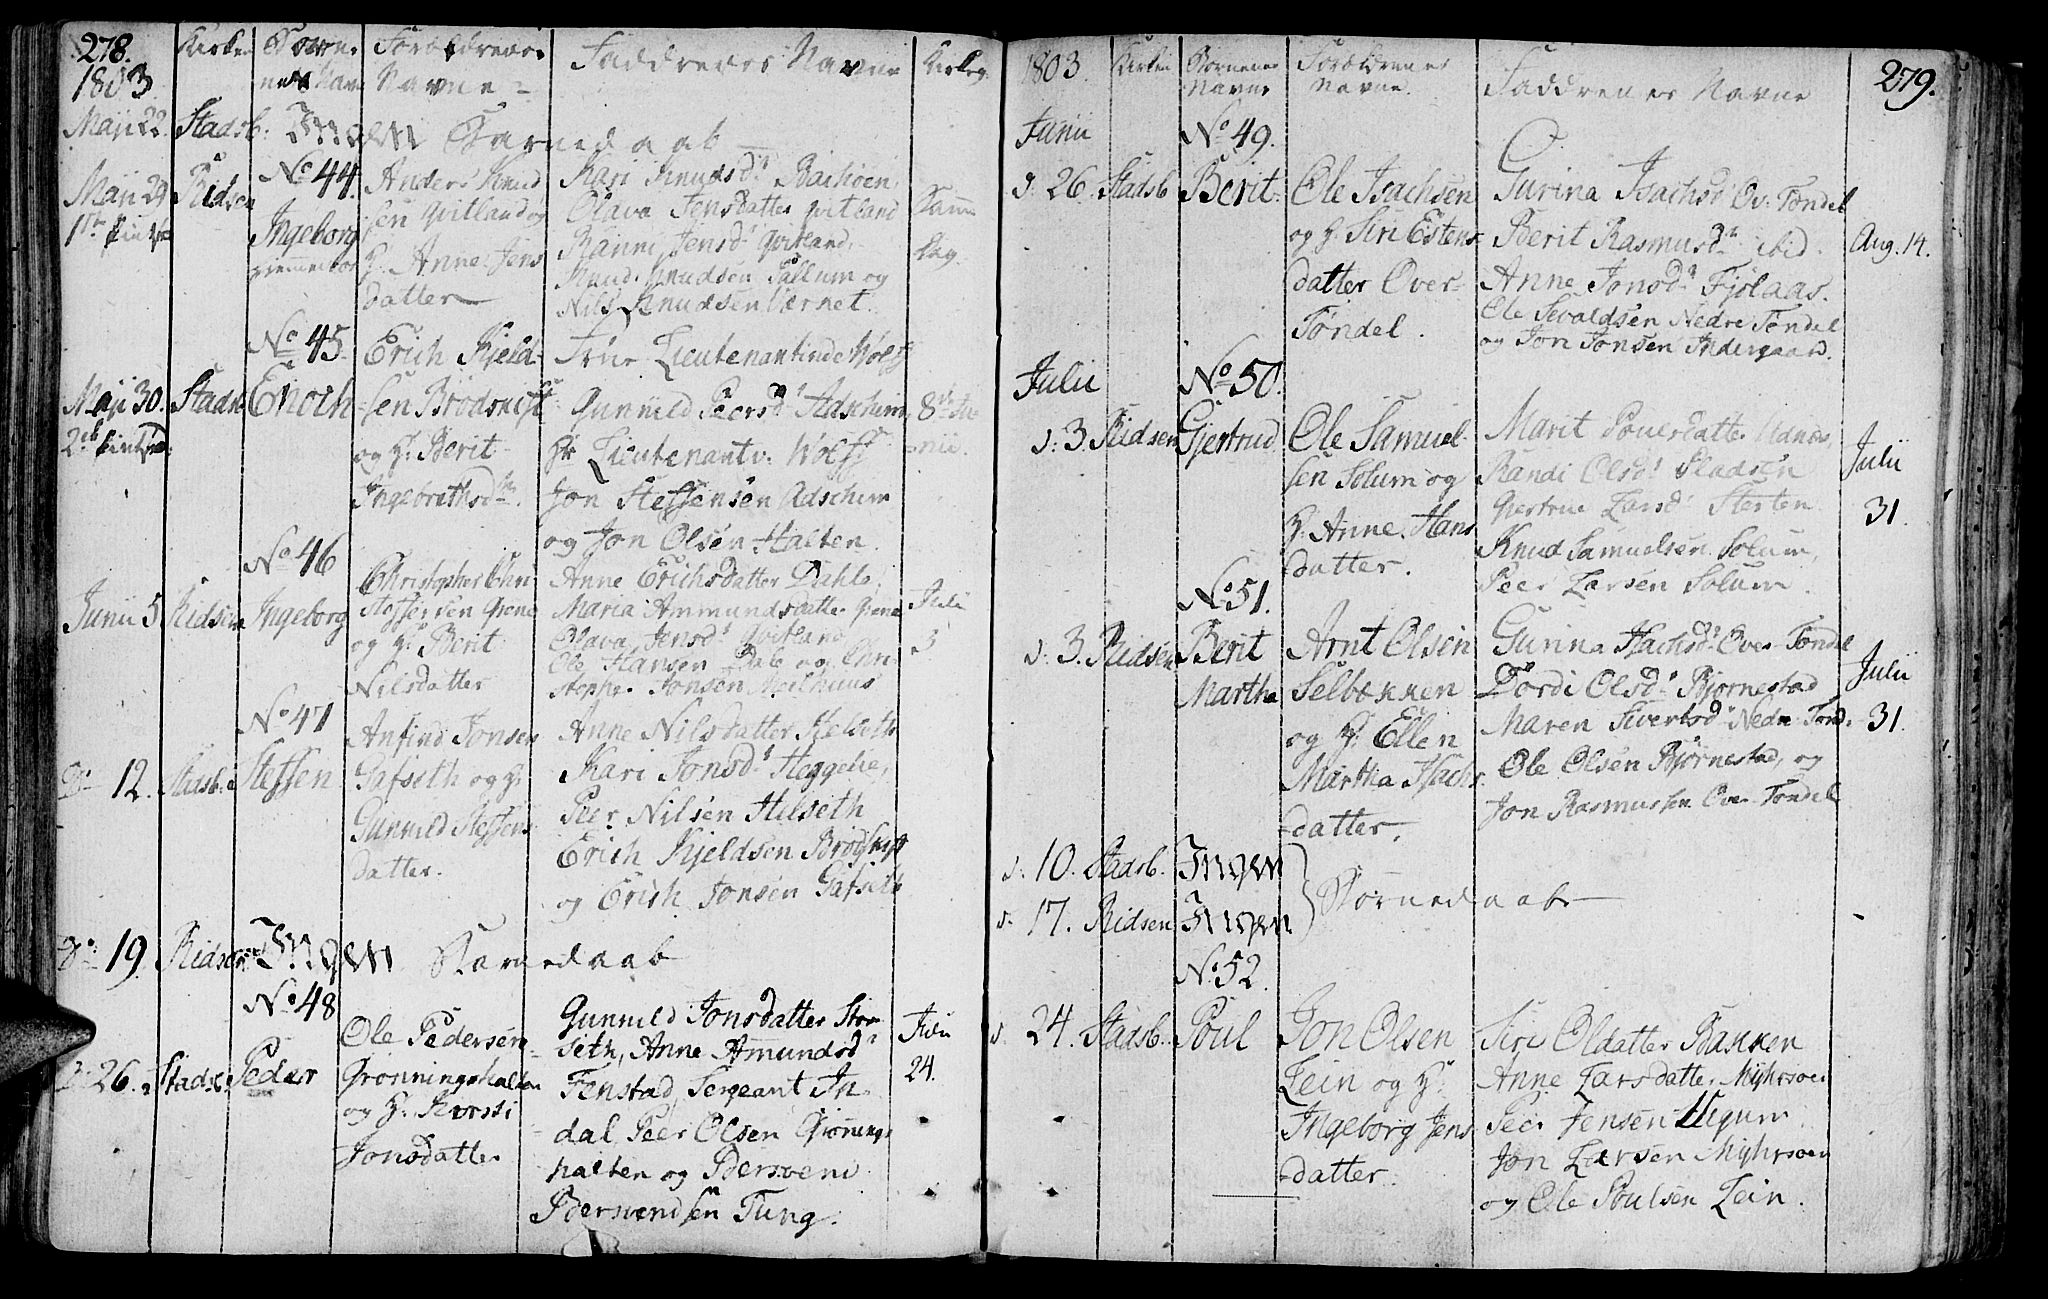 278.
1803
Kirken
Navne
Faddrenes Navne
Kirkeg.
Maji 22.
Stadsb.
Ingen Barnedaab
Maji 29
1ste Pintse
Ridsen
No 44.
Ingeborg
hjemmedøbt
Anders Knud
sen Qvitland og
H. Anne Jens
datter
Kari Knudsdr
Olava Jensdatter Qvitland
Ranni Jensdr Qvitland,
Knud Knudsen Sallum og
Nils Knudsen Værnet.
Samme
Dag.
Maji 30.
2den Pintsed.
Stadsb.
No 45.
Enoch
Erich Kjeld-
sen Brødskift
og H. Berit
Ingebrethsdr.
Frue Lieutenantinde Wolff
Gunnild Peersdr Adschim
Hr Lieutenant v. Wolff
Jon Steffensen Adschim
og Jon Olsen Halten.
8de Ju-
nii.
Junii 5.
Ridsen
No 46
Ingeborg
Christopher Chri
stoffersen Grene
og H. Berit
Nilsdatter
Anne Erichsdatter Dahle.
Maria Ammundsdatter Grene
Olava Jensdr Qvitland
Ole Hansen Dale og Chri-
stopher Jonsen Melhuus
Julii
3
Do 12.
Stadsb.
No 47
Steffen
Anfind Jonsen
Gafseth og H.
Gunnild Steffens
datter.
Anne Nilsdatter Helseth
Kari Jonsdr Heggelie,
Peer Nilsen Helseth
Erich Kjeldsen Brødskift
og Erich Jonsen Gafseth
Do 19.
Ridsen
Ingen Barnedaab
D. 26.
Stadsb.
No 48
Peder
Ole Pedersen
Grønningshalten
og H. Kirsti
Jonsdatter
Gunnild Jonsdatter Stor-
seth, Anne Amundsdr
Fenstad, Sergeant In-
dal, Peer Olsen Grønnings
halten og Bersvend
Bersvendsen Tung.
Julii
24.
1803.
Kirken
Børnenes
Navne
Forældrenes
Navne.
Faddrenes Navne
279.
Junii
d. 26.
Stadsb
No 49.
Berit
Ole Isachsen
og H. Siri Estens
datter Over-
Tøndel.
Gurina Isachsdr Ov. Tøndel
Berit Rasmusdr ibid.
Anne Jonsdr Fjølaas.
Ole Sevaldsen Nedre Tøndel
og Jon Jonsen Indergaard.
Aug. 14.
Julii
d. 3.
Ridsen
No 50.
Gjertrud
Ole Samuel-
sen Solum og
H. Anne Hans
datter.
Marit Povelsdatter Udnæs,
Randi Olsdr Sladsen
Gjertrue Larsdr Sterten
Knud Samuelsen Solum,
Peer Larsen Solum.
Julii
31.
d. 3.
Ridsen
No 51.
Berit
Martha
Arnt Olsen
Selbækken
og H. Ellen
Martha Isachs
datter.
Gurina Isachsdr Over Tøndel
Dordi Olsdr Bjørnestad
Maren Sivertsdr Nedre Tønd.
Ole Olsen Bjørnestad, og
Jon Rasmussen Over Tøndel.
Julii
31.
d. 10.
Stadsb.
Ingen
d. 17.
Ridsen
Ingen
Børnedaab
d. 24.
Stadsb.
No 52.
Poul
Jon Olsen
Lein og H.
Ingeborg Jens
datter.
Siri Oldatter Bakken
Anne Larsdatter Myhrsven
Peer Jensen Ugum
Jon Larsen Myhrsven
og Ole Poulsen Lein.